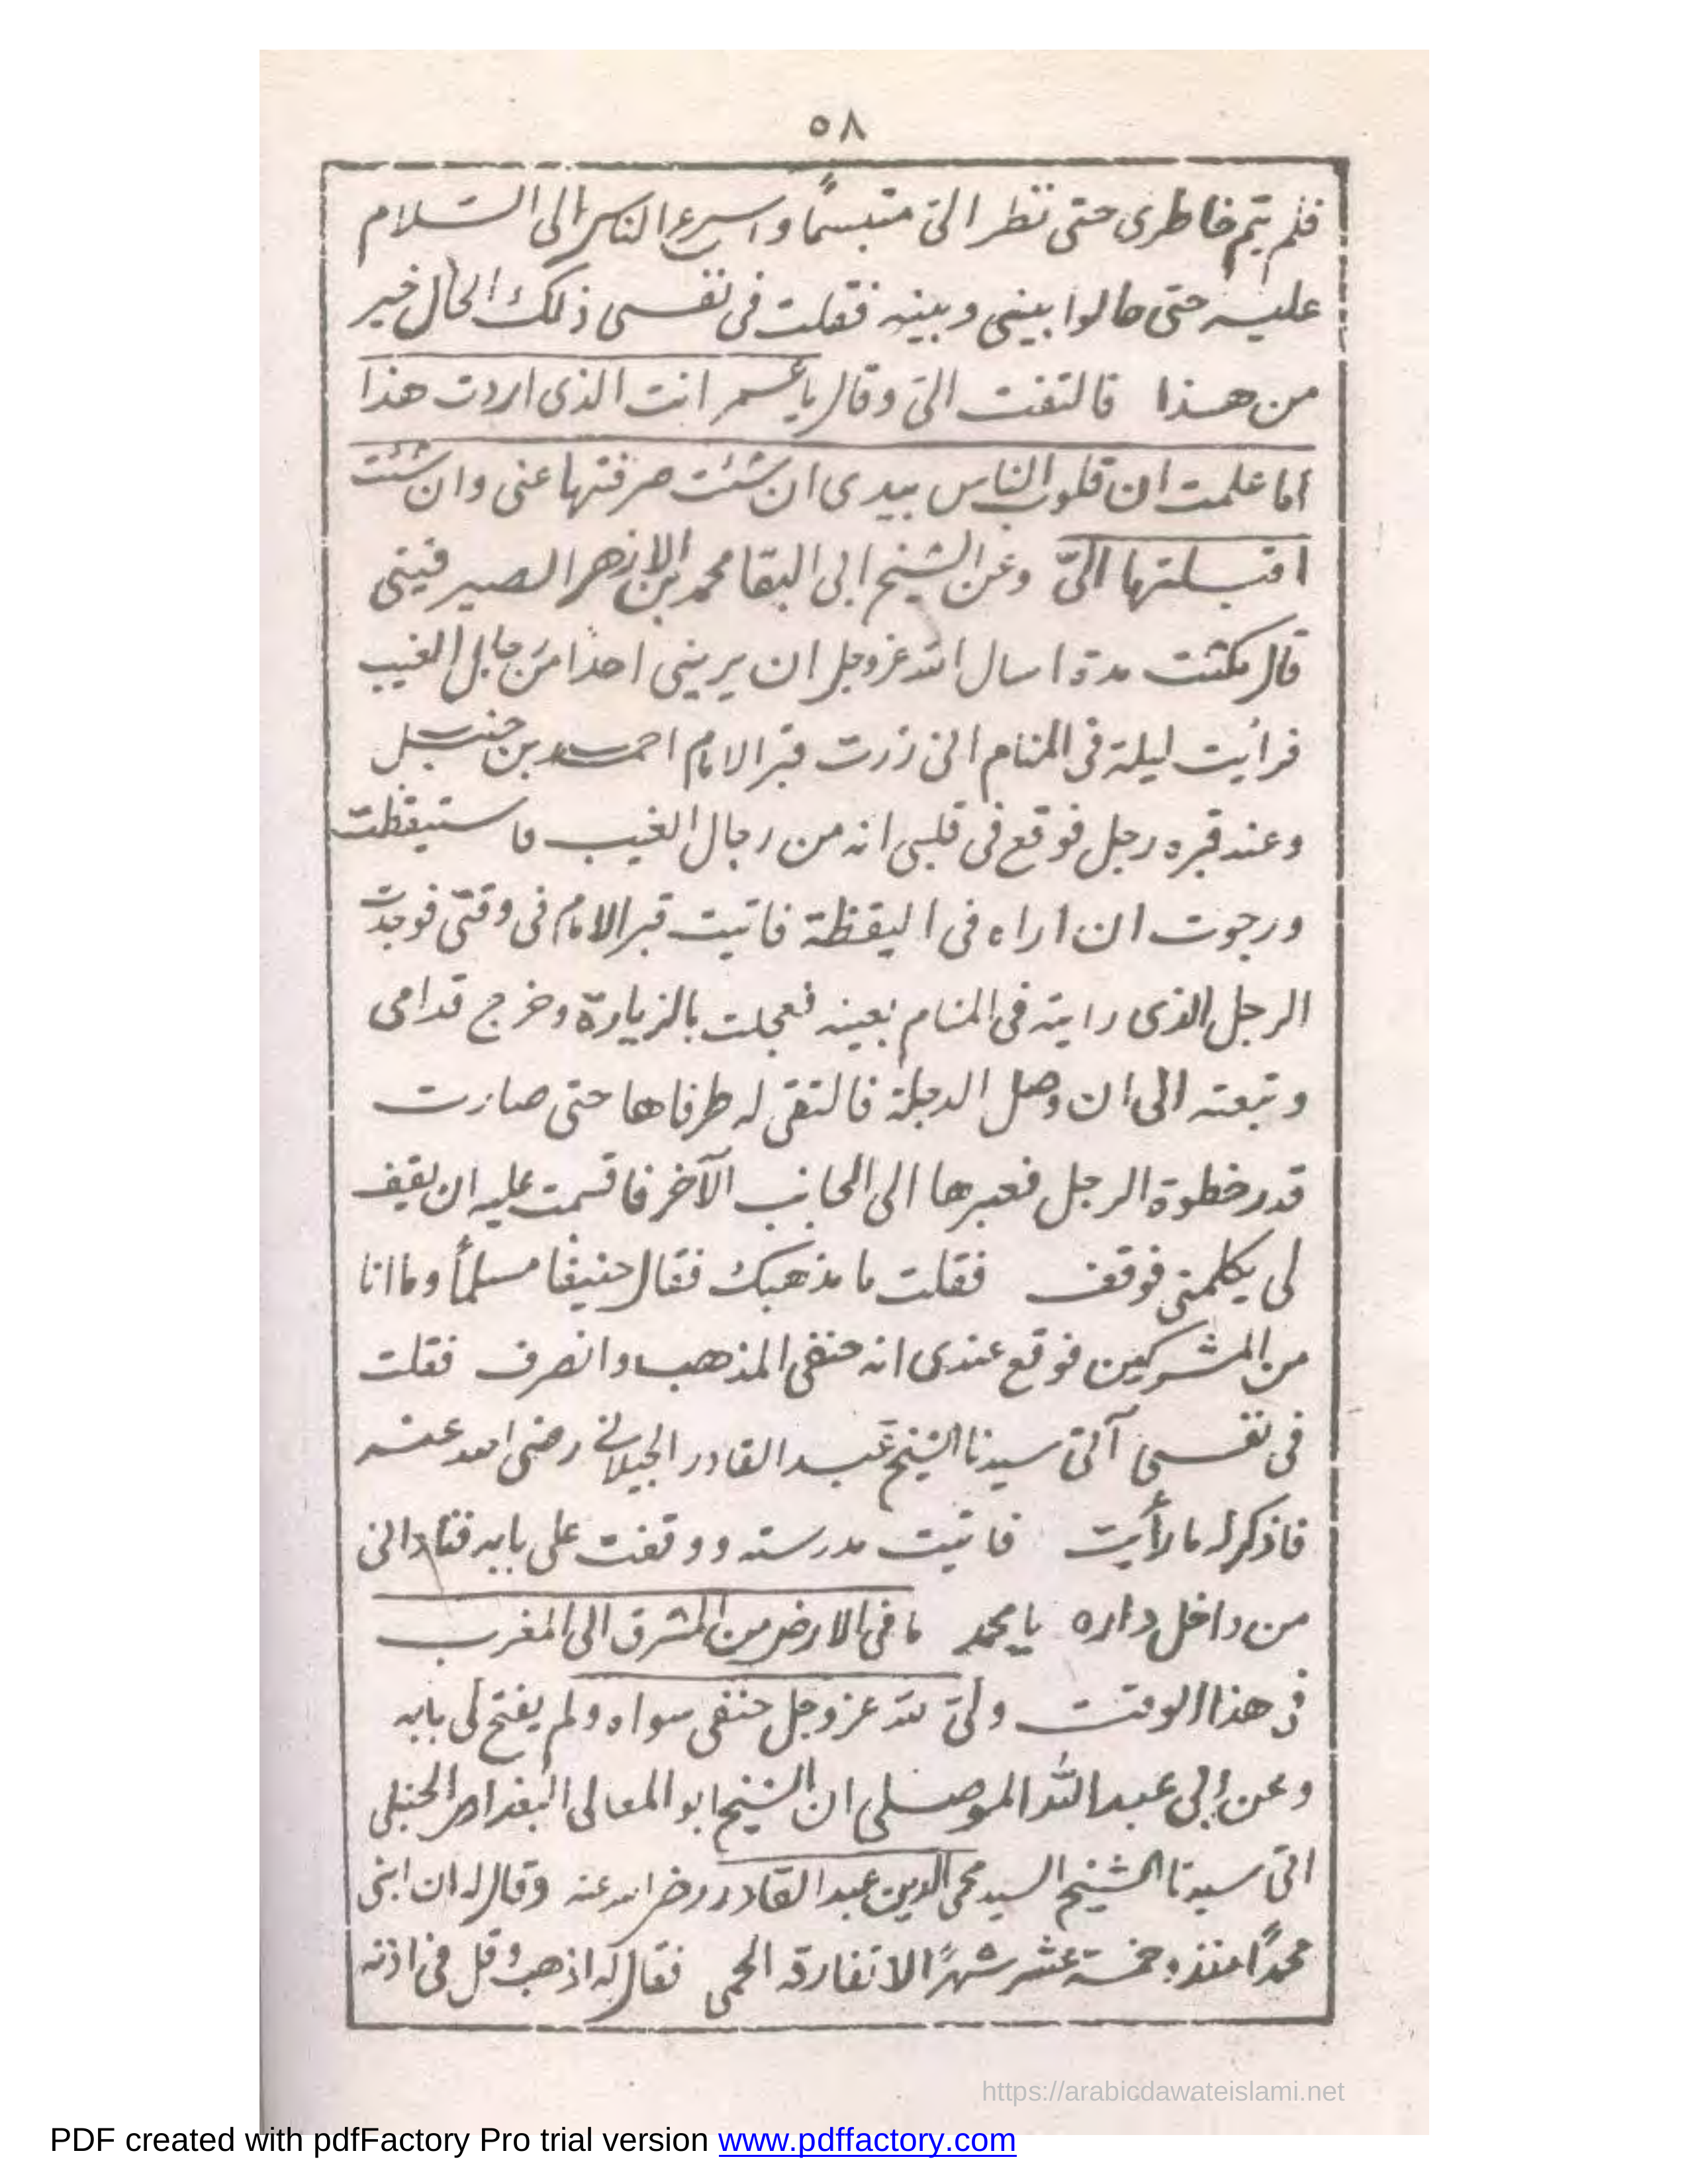 ٥٨
فلم يتم خاطرى حتى نظر الىّ متبسمًا واسرع الناس الى السلام
عليه حتى حالوا بينى وبينه فقلت فى نفسى ذلك الحال خير
من هذا فالتفت الىّ وقال يا عمر انت الذى اردت هذا
اما علمت ان قلوب الناس بيدى ان شئت صرفتها عنى وان شئت
اقبلتها الىّ وعن الشيخ ابى البقا محمد بن الازهر الصيرفينى
قال مكثت مدة اسال الله عزوجل ان يرينى احدًا من رجال الغيب
فرأيت ليلة فى المنام انى زرت قبر الامام احمد بن حنبل
وعند قبره رجل فوقع فى قلبى انه من رجال الغيب فاستيقظت
ورجوت ان اراه فى اليقظة فاتيت قبر الامام فى وقتى فوجدت
الرجل الذى رايته فى المنام بعينه فعجلت بالزيارة وخرج قدامى
وتبعته الى ان وصل الدجلة فالتقى له طرفاها حتى صارت
قدر خطوة الرجل فعبرها الى الجانب الآخر فاقسمت عليه ان يقف
لى يكلمنى فوقف فقلت ما مذهبك فقال حنيفا مسلمًا وما انا
من المشركين فوقع عندى انه حنفى المذهب وانصرف فقلت
فى نفسى آتى سيدنا الشيخ عبد القادر الجيلانى رضى الله عنه
فاذكر له ما رأيت فاتيت مدرسته ووقفت على بابه فنادانى
من داخل داره يا محمد ما فى الارض من المشرق الى المغرب
فى هذا الوقت ولىّ لله عزوجل حنفى سواه ولم يفتح لى بابه
وعن ابى عبد الله الموصلى ان الشيخ ابو المعالى البغدادى الحنبلى
اتى سيدنا الشيخ السيد محى الدين عبد القادر رضى الله عنه وقال له ان ابنى
محمدًا منذ خمسة عشر شهرًا لا تفارقه الحمى فقال له اذهب وقل فى اذنه
https://arabicdawateislami.net
PDF created with pdfFactory Pro trial version www.pdffactory.com